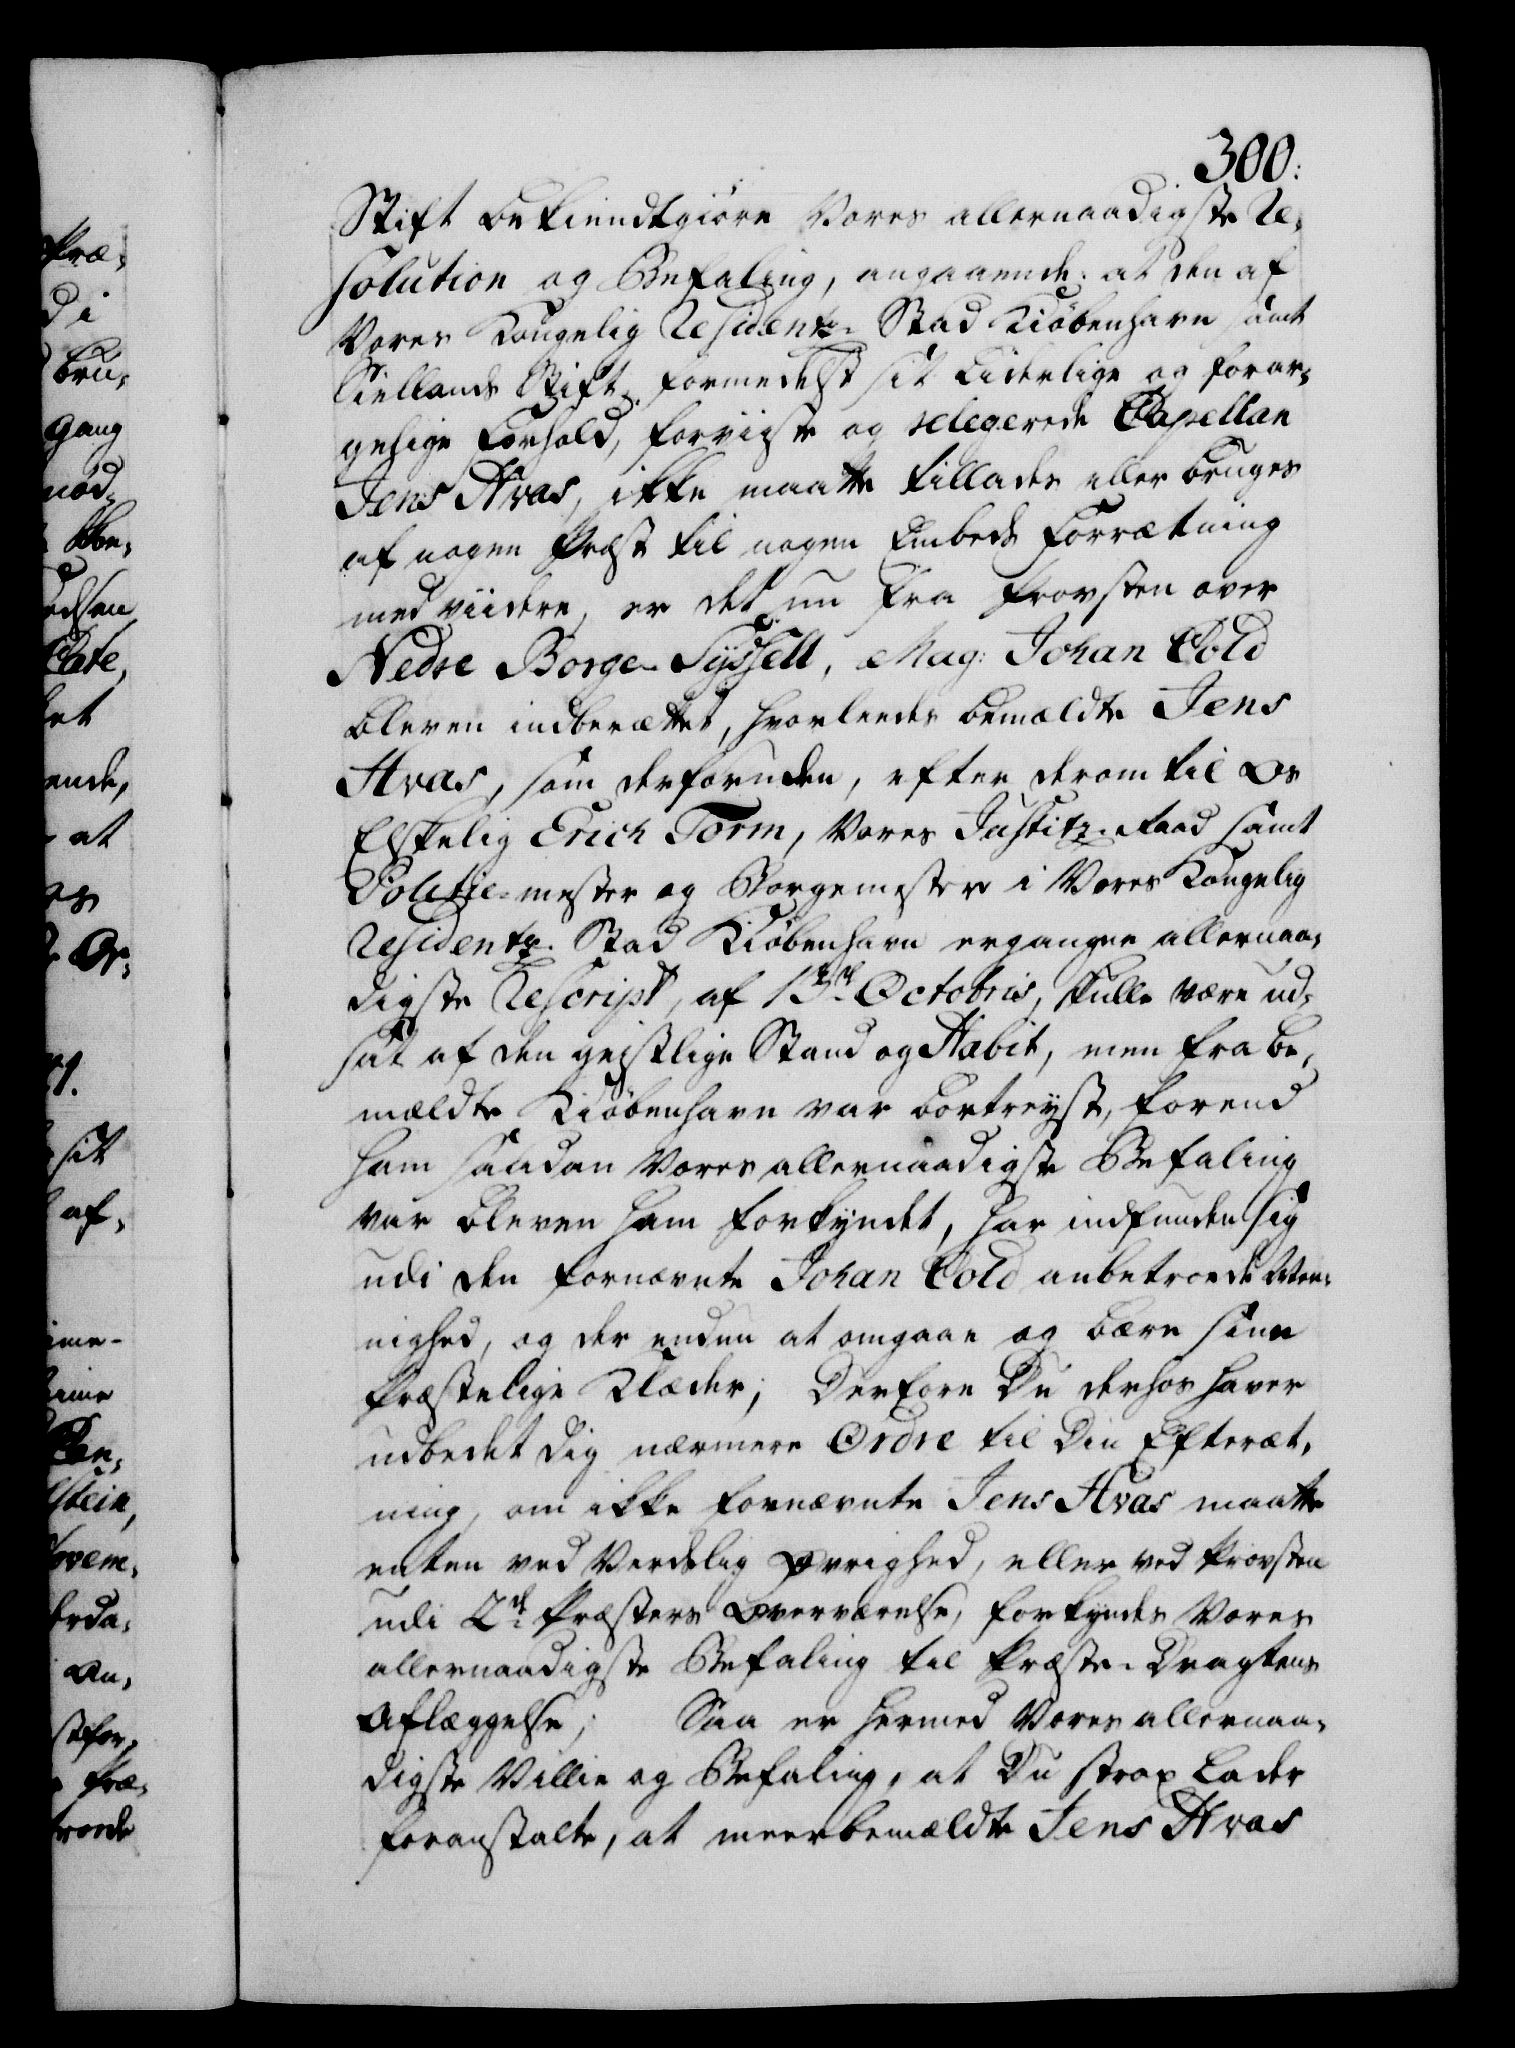 300:
Stift bekiendtgiøre Vores allernaadigste Re-
solution og Befaling, angaaende: at den af
Vores Kongelig Residentz-Stad Kiøbenhavn samt
Siellands Stift, formedelst sit Liderlige og forar-
gelige Forhold, forviiste og relegerede Capellan
Jens Hvas, ikke maatte tillades eller bruges
af nogen Præst til nogen Embeds Forrætning
med viidere, er det nu fra Provsten over
Nedre Borge-Sÿssell, Mag: Johan Cold
bleven indberættet, hvorleedes bemældte Jens
Hvas, som desforuden, efter derom til Os
Elskelig Erich Torm, Vores Justitz-Raad samt
Politie-mester og Borgemester i Vores Kongelig
Residentz-Stad Kiøbenhavn ergangne allernaa-
digste Rescript, af 13de Octobris, skulle være ud-
sat af den geistlige Stand og Habit, men fra be-
mældte Kiøbenhavn var bortreyst, forend
ham saadan Vores allernaadigste Befaling
var bleven ham forkyndet, har indfunden sig
udi den fornævnte Johan Cold anbetroede Me-
nighed, og der endnu at omgaae og bære sine
Præstelige Klæder; Derfore Du derhos haver
udbedet dig nærmere Ordre til Din Efteræt-
ning, om ikke fornævnte Jens Hvas maatte
enten ved Verdslig Øvrighed, eller ved Provsten
udi 2de Præsters Overværelse, forkyndes Vores
allernaadigste Befaling til Præste-Dragtens
Aflæggelse; Saa er hermed Vores allernaa-
digste Villie og Befaling, at Du strax lader
foranstalte, at meerbemældte Jens Hvas